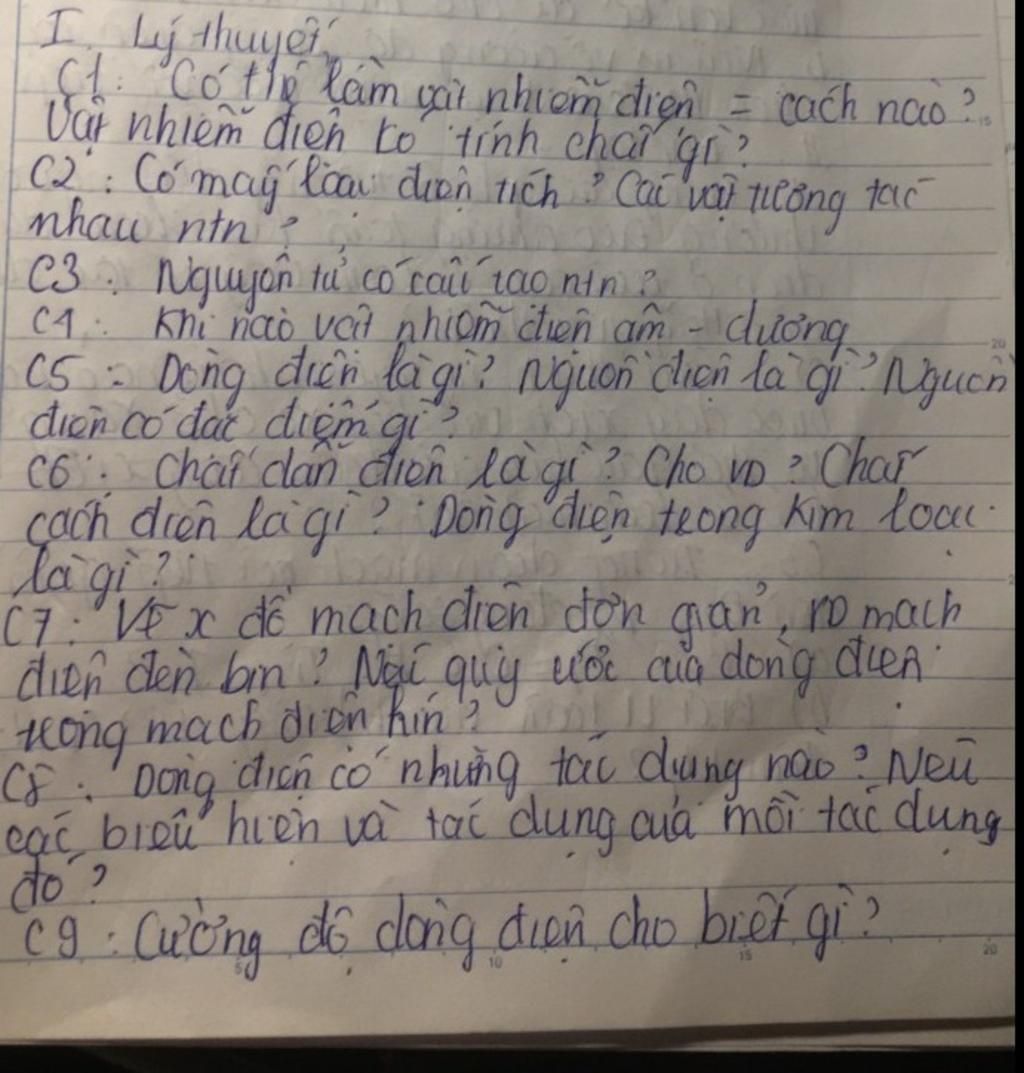 I. Lý thuyết
C1: Có thể làm vật nhiễm điện = cách nào?
Vật nhiễm điện có tính chất gì?
C2: Có mấy loại điện tích? Các vật tương tác
nhau ntn?
C3: Nguyên tử có cấu tạo ntn?
C4: Khi nào vật nhiễm điện âm - dương
C5: Dòng điện là gì? Nguồn điện là gì? Nguồn
điện có đặc điểm gì?
C6: Chất dẫn điện là gì? Cho VD? Chất
cách điện là gì? Dòng điện trong kim loại
là gì?
C7: Vẽ x đồ mạch điện đơn giản, mạch
điện đèn pin? quy ước của dòng điện
trong mạch điện kín?
C8: Dòng điện có những tác dụng nào? Nêu
các biểu hiện và tác dụng của mỗi tác dụng
đó?
C9: Cường độ dòng điện cho biết gì?